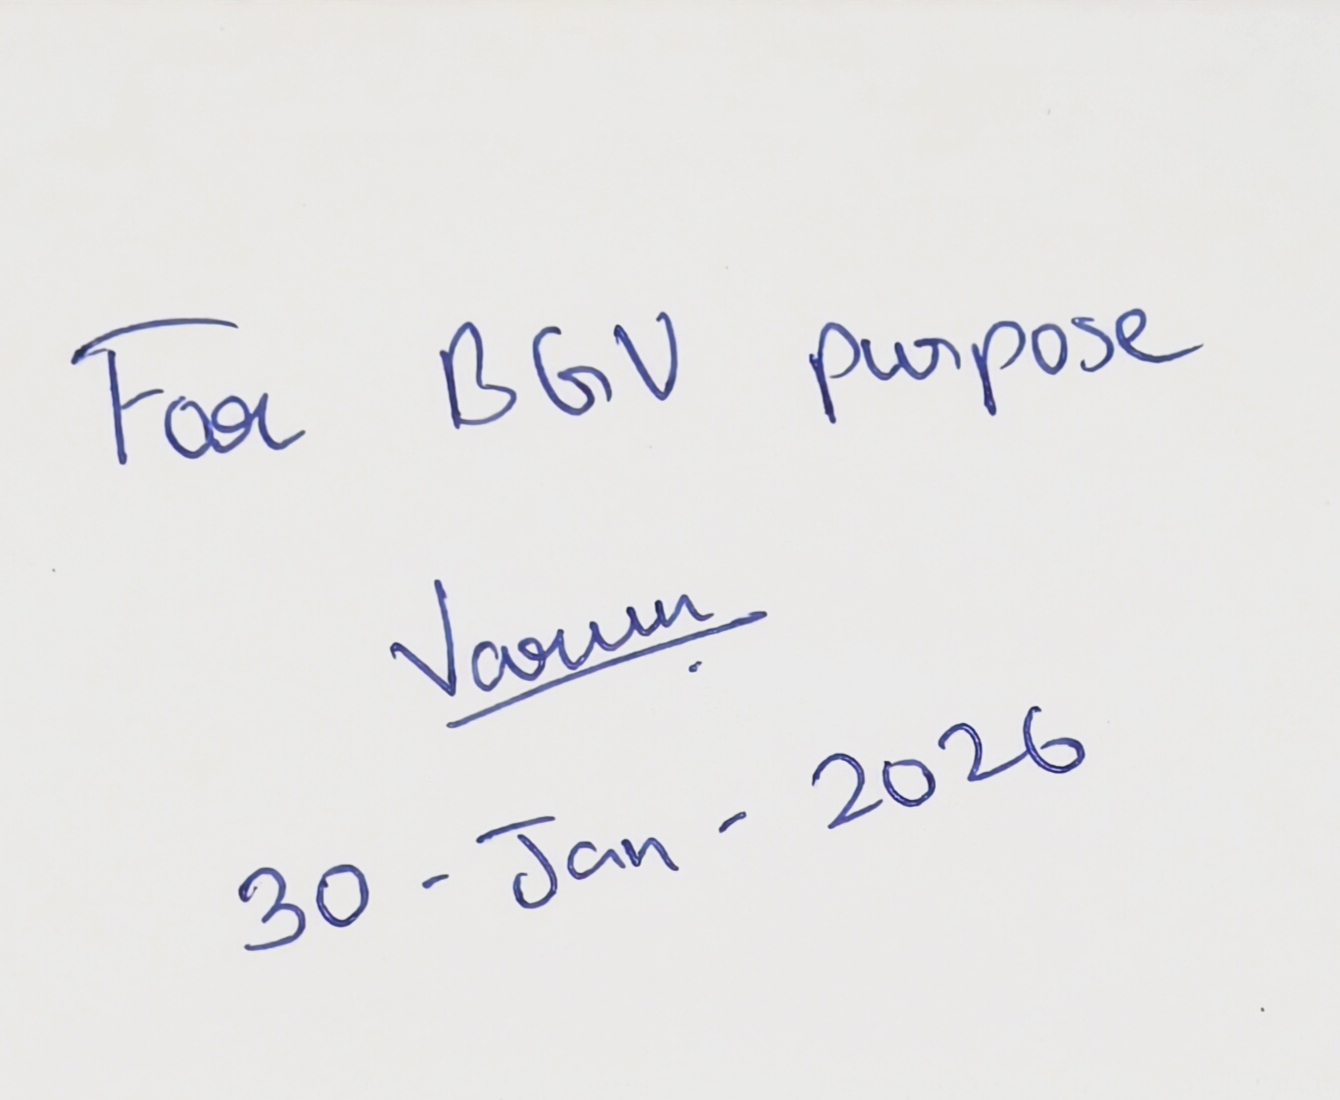 For BGV purpose
Varun
30 - Jan - 2026